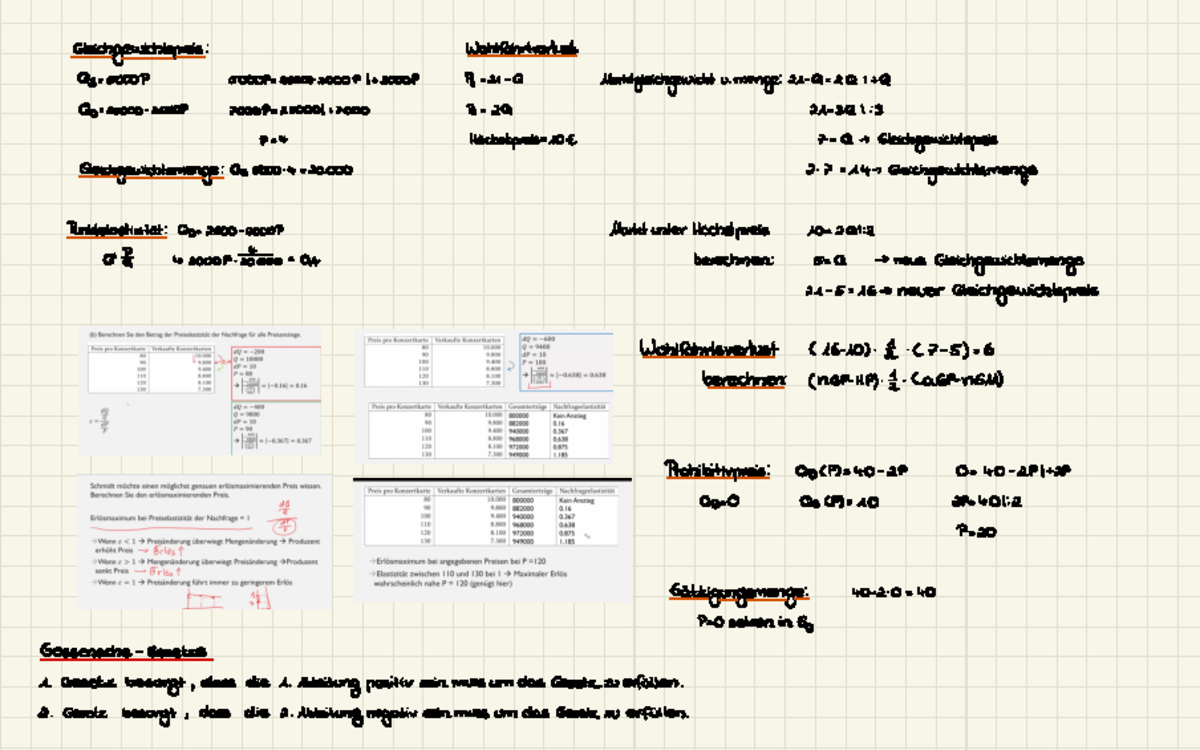 Gleichgewichtspreis:
Gleichgewichtsmenge:
P = 4
Wohlfahrtverlust
P = 21 - Q
P = 2Q
Höchstpreis = 10 €
Marktgleichgewicht u. menge: 21-Q = 2Q |+Q
21 = 3Q |:3
7 = Q → Gleichgewichtspreis
2·7 = 14 → Gleichgewichtsmenge
Markt unter Höchstpreis 10 = 2Q |:2
berechnen: 5 = Q → neue Gleichgewichtsmenge
21 - 5 = 16 → neuer Gleichgewichtspreis
Wohlfahrtsverlust (16-10) · 1/2 · (7-5) = 6
berechnen:
Prohibitivpreis: QD(P) = 40 - 2P 0 = 40 - 2P |+2P
QD = 0 QS(P) = 10 2P = 40 |:2
P = 20
Sättigungsmenge: 40 - 2·0 = 40
P=0 setzen in
(b) Berechnen Sie den Betrag der Preiselastizität der Nachfrage für alle Preisanstiege.
Preis pro Konzertkarte Verkaufte Konzertkarten
80 10.000
90 9.800
100 9.400
110 8.800
120 8.100
130 7.300
dQ = −200
Q = 10000
dP = 10
P = 80
= |−0.16| = 0.16
dQ = −400
Q = 9800
dP = 10
P = 90
= |−0.367| = 0.367
Preis pro Konzertkarte Verkaufte Konzertkarten
80 10.000
90 9.800
100 9.400
110 8.800
120 8.100
130 7.300
dQ = −600
Q = 9400
dP = 10
P = 100
= |−0.638| = 0.638
Preis pro Konzertkarte Verkaufte Konzertkarten Gesamterträge Nachfrageelastizität
80 10.000 800000 Kein Anstieg
90 9.800 882000 0.16
100 9.400 940000 0.367
110 8.800 968000 0.638
120 8.100 972000 0.875
130 7.300 949000 1.185
Schmidt möchte einen möglichst genauen erlösmaximierenden Preis wissen.
Berechnen Sie den erlösmaximierenden Preis.
Erlösmaximum bei Preiselastizität der Nachfrage = 1
Wenn ε < 1 → Preisänderung überwiegt Mengenänderung → Produzent
erhöht Preis → Erlös ↑
Wenn ε > 1 → Mengenänderung überwiegt Preisänderung → Produzent
senkt Preis → Erlös ↑
Wenn ε = 1 → Preisänderung führt immer zu geringerem Erlös
Preis pro Konzertkarte Verkaufte Konzertkarten Gesamterträge Nachfrageelastizität
80 10.000 800000 Kein Anstieg
90 9.800 882000 0.16
100 9.400 940000 0.367
110 8.800 968000 0.638
120 8.100 972000 0.875
130 7.300 949000 1.185
→Erlösmaximum bei angegebenen Preisen bei P =120
→Elastizität zwischen 110 und 130 bei 1 → Maximaler Erlös
wahrscheinlich nahe P = 120 (genügt hier)
Gossensche - Gesetze
1. Gesetz besagt, dass die 1. Ableitung positiv sein muss um das Gesetz zu erfüllen.
2. Gesetz besagt, dass die 2. Ableitung negativ sein muss um das Gesetz zu erfüllen.